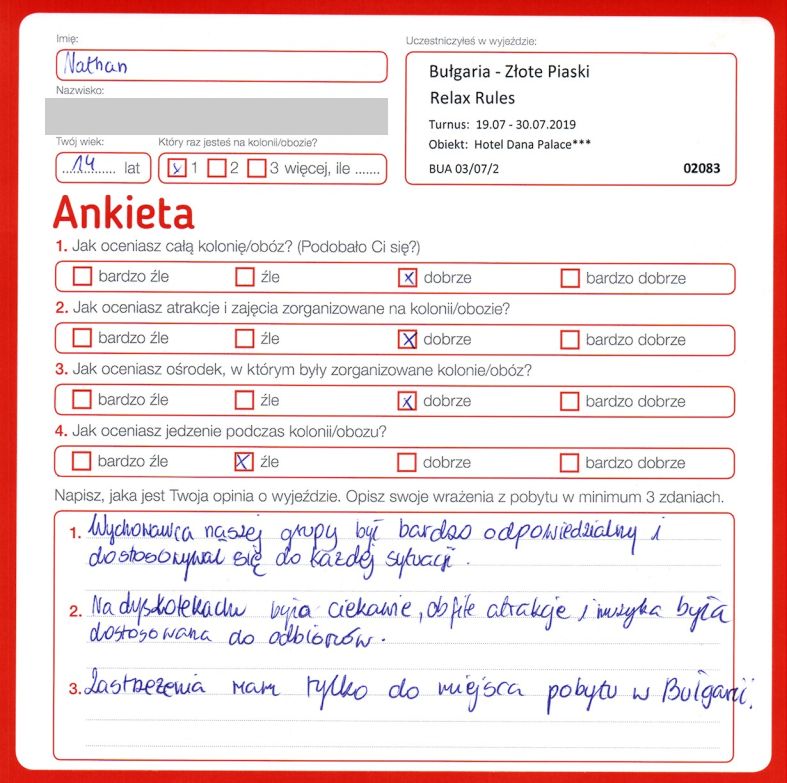 Imię:
Nathan
Nazwisko:
Twój wiek:
14 lat
Który raz jesteś na kolonii/obozie?
x 1 2 3 więcej, ile .......
Uczestniczyłeś w wyjeździe:
Bułgaria - Złote Piaski
Relax Rules
Turnus: 19.07 - 30.07.2019
Obiekt: Hotel Dana Palace***
BUA 03/07/2 02083
Ankieta
1. Jak oceniasz całą kolonię/obóz? (Podobało Ci się?)
bardzo źle źle x dobrze bardzo dobrze
2. Jak oceniasz atrakcje i zajęcia zorganizowane na kolonii/obozie?
bardzo źle źle x dobrze bardzo dobrze
3. Jak oceniasz ośrodek, w którym były zorganizowane kolonie/obóz?
bardzo źle źle x dobrze bardzo dobrze
4. Jak oceniasz jedzenie podczas kolonii/obozu?
bardzo źle x źle dobrze bardzo dobrze
Napisz, jaka jest Twoja opinia o wyjeździe. Opisz swoje wrażenia z pobytu w minimum 3 zdaniach.
1. Wychowawca naszej grupy był bardzo odpowiedzialny i
dostosowywał się do każdej sytuacji.
2. Na dyskotekach było ciekawie, obfite atrakcje i muzyka była
dostosowana do odbiorców.
3. Zastrzeżenia mam tylko do miejsca pobytu w Bułgarii.